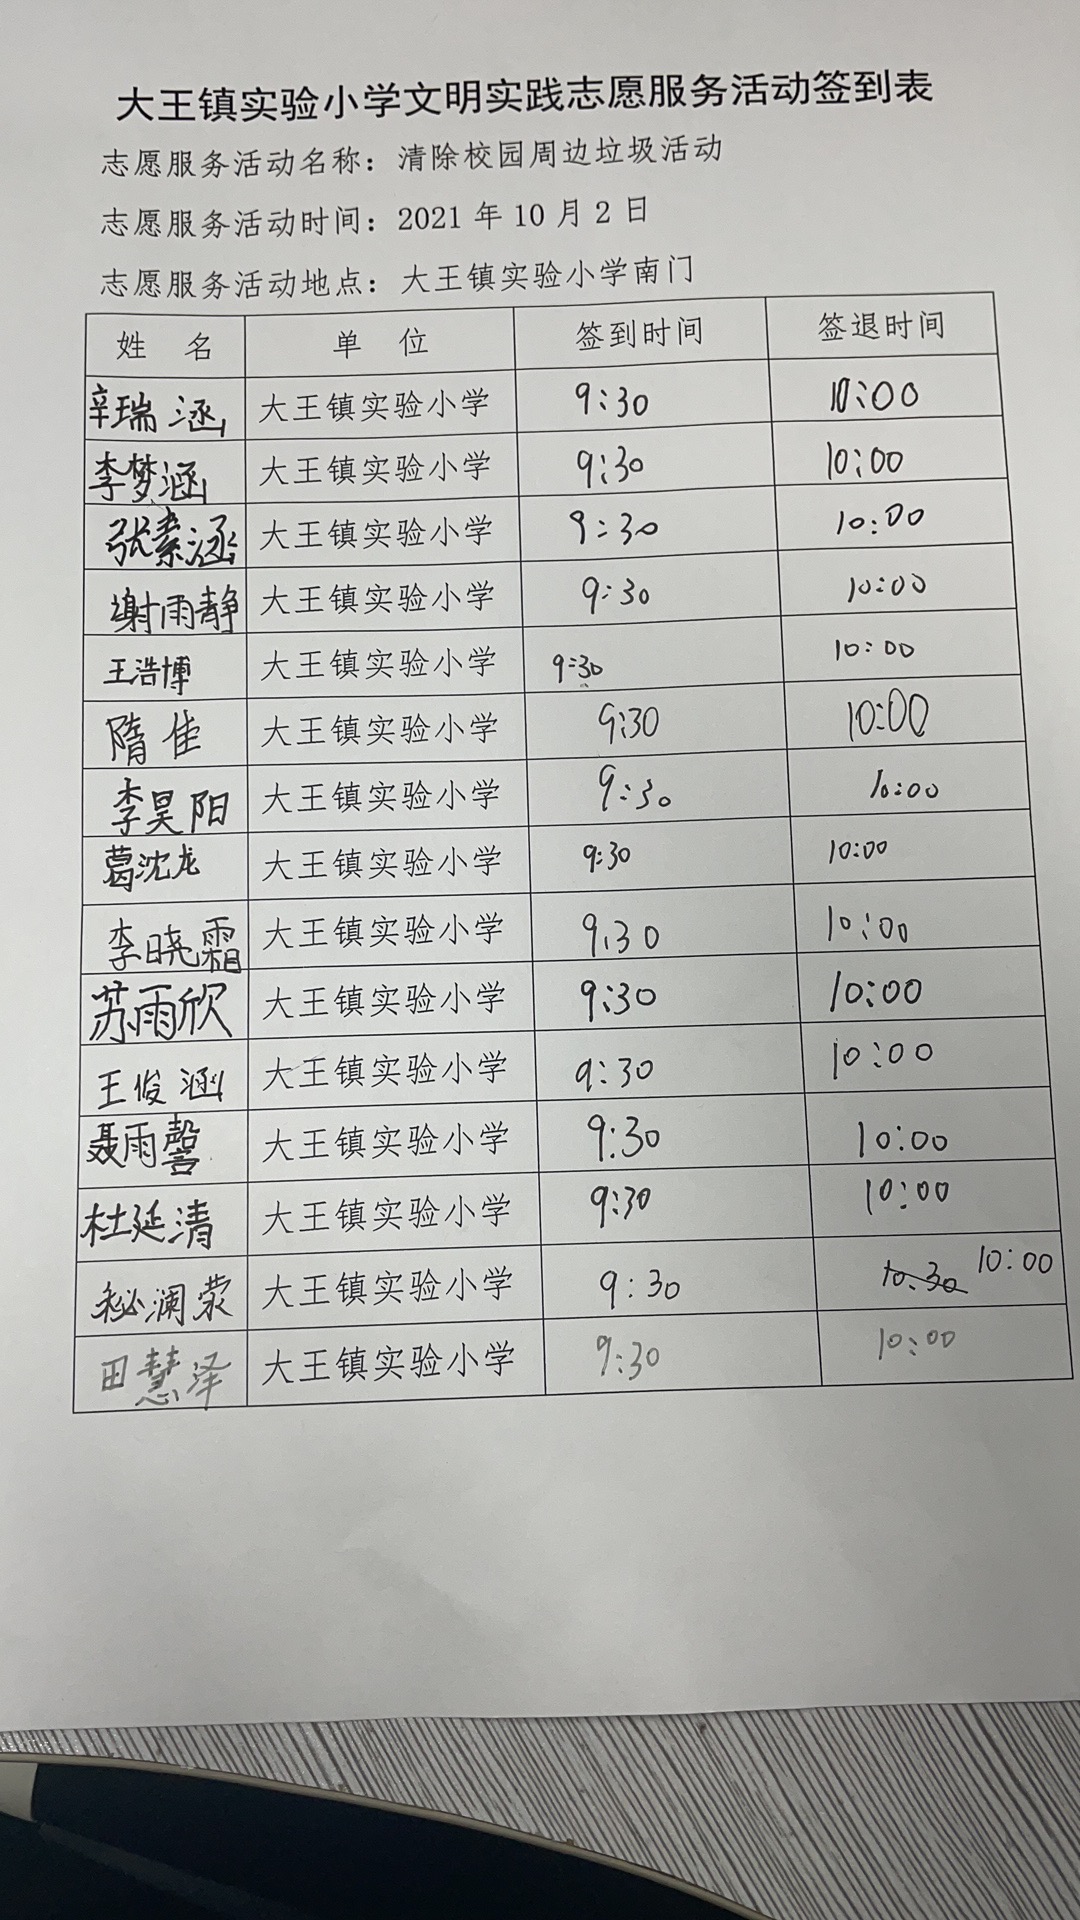 大王镇实验小学文明实践志愿服务活动签到表
志愿服务活动名称：清除校园周边垃圾活动
志愿服务活动时间：2021 年 10 月 2 日
志愿服务活动地点：大王镇实验小学南门
姓 名 单 位 签到时间 签退时间
辛瑞涵 大王镇实验小学 9:30 10:00
李梦涵 大王镇实验小学 9:30 10:00
张素涵 大王镇实验小学 9:30 10:00
谢雨静 大王镇实验小学 9:30 10:00
王浩博 大王镇实验小学 9:30 10:00
隋佳 大王镇实验小学 9:30 10:00
李昊阳 大王镇实验小学 9:30 10:00
葛沈龙 大王镇实验小学 9:30 10:00
李晓霜 大王镇实验小学 9:30 10:00
苏雨欣 大王镇实验小学 9:30 10:00
王俊涵 大王镇实验小学 9:30 10:00
聂雨馨 大王镇实验小学 9:30 10:00
杜延清 大王镇实验小学 9:30 10:00
秘澜蒙 大王镇实验小学 9:30 10:30 10:00
田慧泽 大王镇实验小学 9:30 10:00